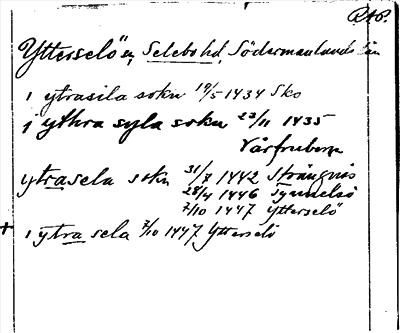 RAP.
Ytterselö sn, Selebo hd, Södermanlands län
i ytrasila sokn 19/5 1434 Sko
i ythra syla sokn 23/11 1435
Vårfruberga
ytrasela sokn 31/7 1442 Strängnäs
28/4 1446 Tynnelsö
7/10 1447 Ytterselö
+ i ytra sela 7/10 1447 Ytterselö